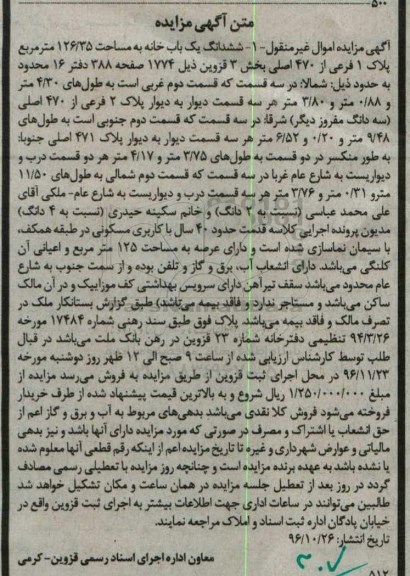 ۵۰۰
متن آگهی مزایده
آگهی مزایده اموال غیرمنقول- ۱- ششدانگ یک باب خانه به مساحت ۱۲۶/۳۵ مترمربع
پلاک ۱ فرعی از ۴۷۰ اصلی بخش ۳ قزوین ذیل ۱۷۷۴ صفحه ۳۸۸ دفتر ۱۶ محدود
به حدود ذیل: شمالا: در سه قسمت که قسمت دوم غربی است به طول‌های ۴/۳۰ متر
و ۰/۸۸ متر و ۳/۸۰ متر هر سه قسمت دیوار به دیوار پلاک ۲ فرعی از ۴۷۰ اصلی
(سه دانگ مفروز دیگر) شرقا: در سه قسمت که قسمت دوم جنوبی است به طول‌های
۹/۴۸ متر و ۰/۲۰ و ۶/۵۲ متر هر سه قسمت دیوار به دیوار پلاک ۴۷۱ اصلی جنوبا:
به طور منکسر در دو قسمت به طول‌های ۳/۷۵ متر و ۴/۱۷ متر هر دو قسمت درب و
دیواریست به شارع عام غربا در سه قسمت که قسمت دوم شمالی به طول‌های ۱۱/۵۰
مترو ۰/۳۱ متر و ۳/۷۶ متر هر سه قسمت درب و دیواریست به شارع عام- ملکی آقای
علی محمد عباسی (نسبت به ۲ دانگ) و خانم سکینه حیدری (نسبت به ۴ دانگ)
مدیون پرونده اجرایی کلاسه قدمت حدود ۴۰ سال با کاربری مسکونی در طبقه همکف،
با سیمان نماسازی شده است و دارای عرصه به مساحت ۱۲۵ متر مربع و اعیانی آن
کلنگی می‌باشد. دارای انشعاب آب، برق و گاز و تلفن بوده و از سمت جنوب به شارع
عام محدود می‌باشد سقف تیرآهن دارای سرویس بهداشتی کف موزاییک و در آن مالک
ساکن می‌باشد و مستاجر ندارد و فاقد بیمه می‌باشد) طبق گزارش بستانکار ملک در
تصرف مالک و فاقد بیمه می‌باشد. پلاک فوق طبق سند رهنی شماره ۱۷۴۸۴ مورخه
۹۴/۳/۲۶ تنظیمی دفترخانه شماره ۲۳ قزوین در رهن بانک ملت می‌باشد در قبال
طلب توسط کارشناس ارزیابی شده از ساعت ۹ صبح الی ۱۲ ظهر روز دوشنبه مورخه
۹۶/۱۱/۲۳ در محل اجرای ثبت قزوین از طریق مزایده به فروش می‌رسد مزایده از
مبلغ ۱/۲۵۰/۰۰۰/۰۰۰ ریال شروع و به بالاترین قیمت پیشنهاد شده از طرف خریدار
فروخته می‌شود فروش کلا نقدی می‌باشد بدهی‌های مربوط به آب و برق و گاز اعم از
حق انشعاب یا اشتراک و مصرف در صورتی که مورد مزایده دارای آنها باشد و نیز بدهی
مالیاتی و عوارض شهرداری و غیره تا تاریخ مزایده اعم از اینکه رقم قطعی آنها معلوم شده
یا نشده باشد به عهده برنده مزایده است و چنانچه روز مزایده با تعطیلی رسمی مصادف
گردد در روز بعد از تعطیل جلسه مزایده در همان ساعت و مکان تشکیل خواهد شد
طالبین می‌توانند در ساعات اداری جهت اطلاعات بیشتر به اجرای ثبت قزوین واقع در
خیابان پادگان اداره ثبت اسناد و املاک مراجعه نمایند.
تاریخ انتشار: ۹۶/۱۰/۲۶
معاون اداره اجرای اسناد رسمی قزوین- کرمی
۸۱۲